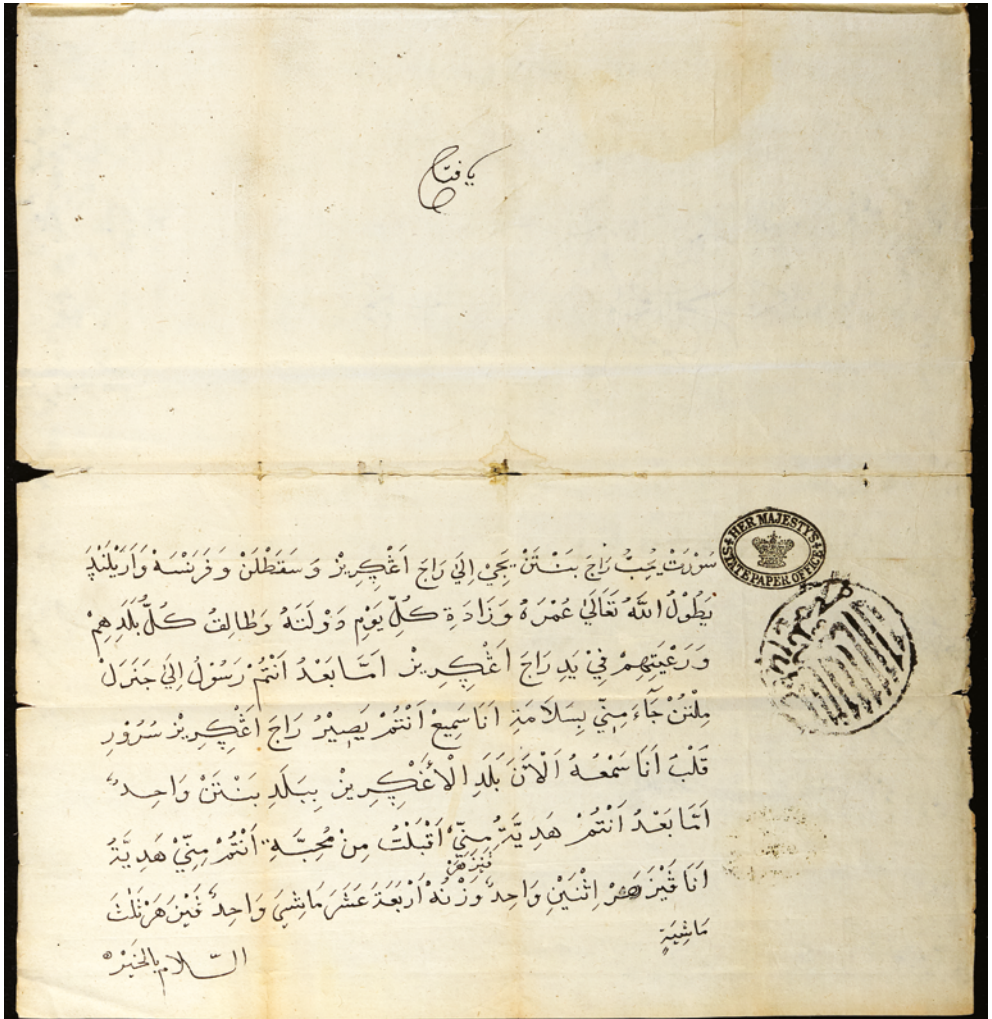 يا فتاح
HER MAJESTYS STATE PAPER OFFICE
سُوْرَتْ يُحِبُّ رَاجَ بَنْتَنْ يَجِيْ اِلَيْ رَاجَ اَغْكِرِيزْ وَسَقَطْلَنْ وَفَرَنْسَهْ وَاَرَيْلَنْدِ
يَطُوْلُ اللّٰهُ تَعَالَيْ عُمْرَهُ وَزَادَةِ كُلِّ يَوْمٍ دَوْلَتَهُ وَطَالِقُ كُلُّ بَلَدِهِمْ
وَرَعْيَتِهِمْ فِيْ يَدِ رَاجَ اَغْكِرِيزْ اَمَّا بَعْدُ اَنْتُمْ رَسُوْلُ اِلَيْ جَنَرَلْ
مِلْتُنْ جَآءَ مِنِّيْ بِسَلَامَةِ اَنَا سَمِيعْ اَنْتُمْ يَصِيْرُ رَاجَ اَغْكِرِيزْ سُرُوْرِ
قَلْبَ اَنَا سَمْعُهُ اَلْاٰنَ بَلَدِ الْاَغْكِرِيزْ بِبَلَدِ بَنْتَنْ وَاحِدٌ
اَمَّا بَعْدُ اَنْتُمْ هَدِيَّةُ مِنِّيْ اَقْبَلْتُ مِنْ مُحِبَّهِ اَنْتُمْ مِنِّيْ هَدِيَّةُ
اَنَا فَيْزَهَرْ اِثْنَيْنِ وَاحِدٌ فَيْزَهَرْ وَزْنُهُ اَرْبَعَةَ عَشَرَ مَاشِيَ وَاحِدٌ فَيْزَهَرْ ثَلٰثَ
مَاشِيَةٍ
السَّلَام بِالخَيْرْ